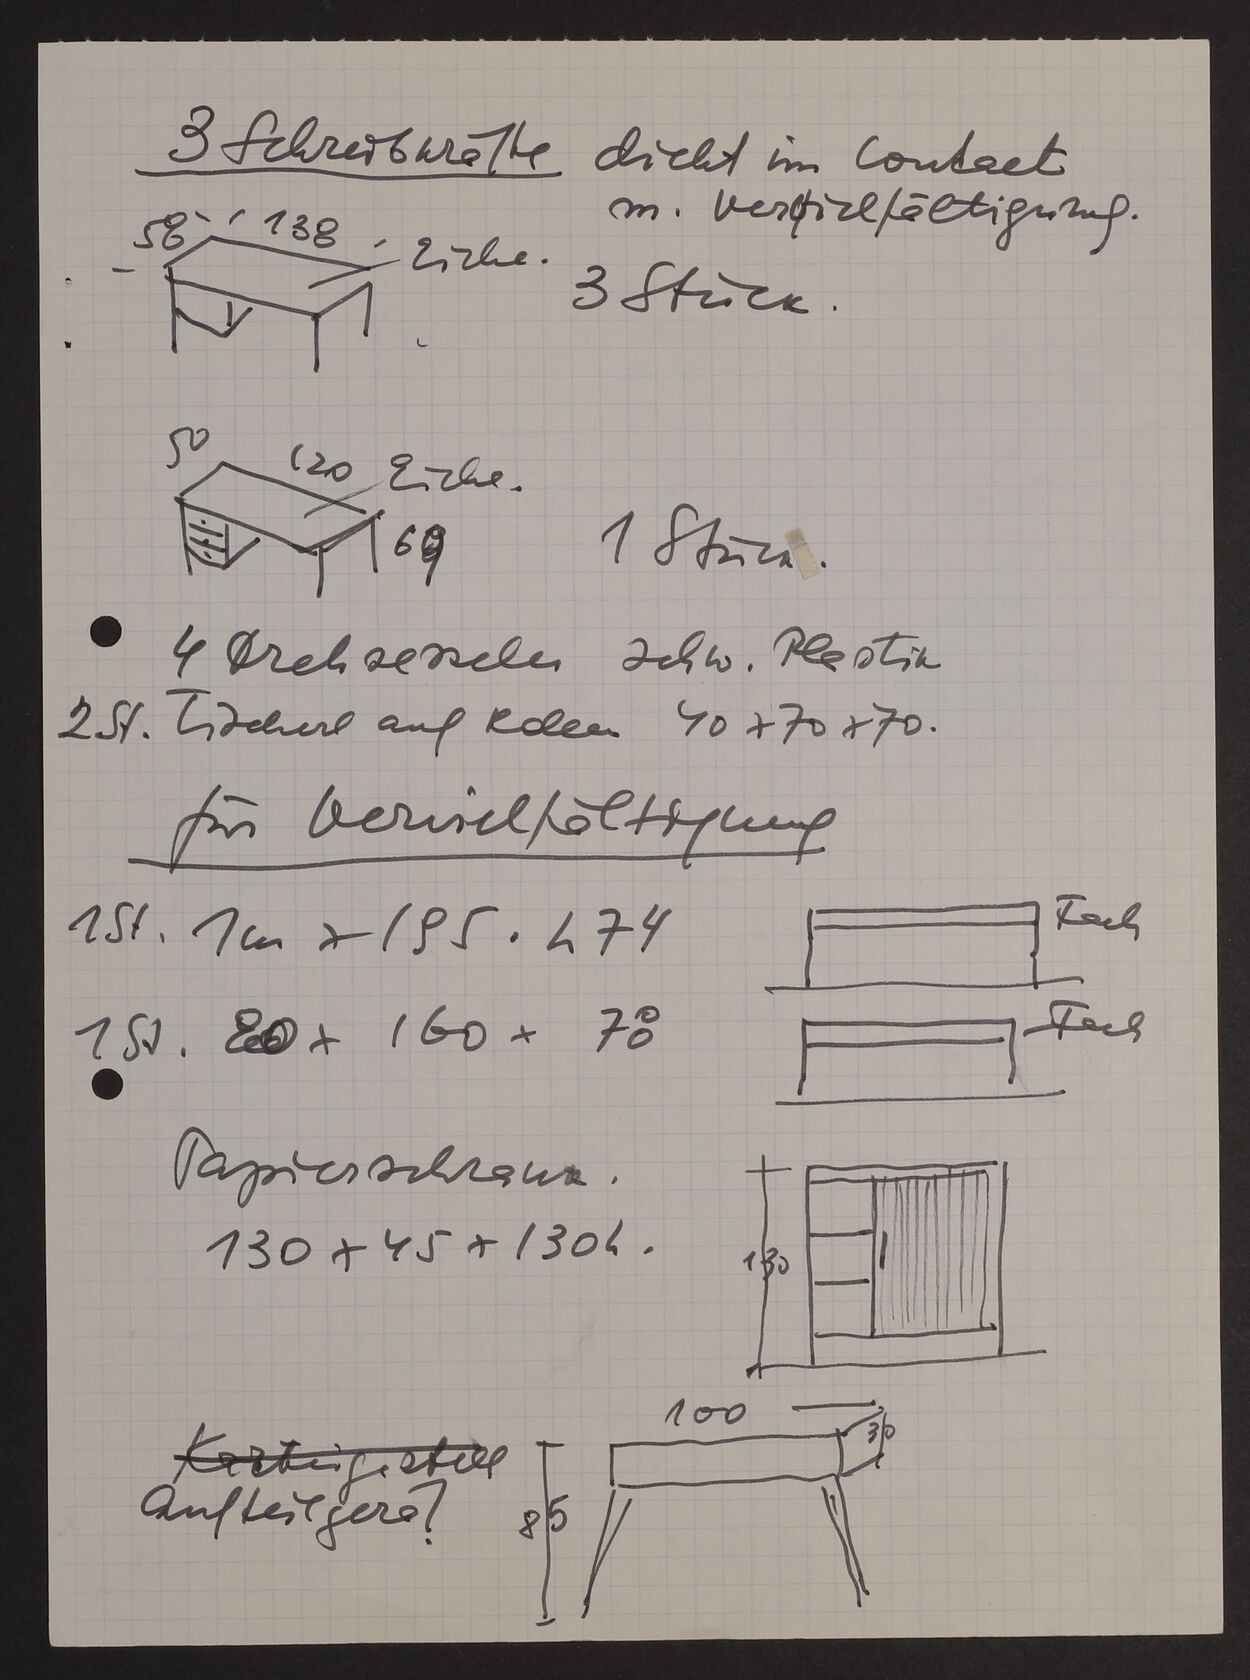 3 Schreibkräfte dicht im Contact
m. Vervielfältigung.
58 138 Eiche.
3 Stück.
50 120 Eiche.
69
1 Stück.
4 Drehsesseln schw. Plastik
2 St. Tischerl auf Rollen 40 x 70 x 70.
für Vervielfältigung
1 St. 1m x 195 . h 74 Fach
1 St. 80 x 160 x 78 Fach
Papierschrank.
130 x 45 x 130 h.
130
100
36
Karteigestell
Aufteilgerät
85